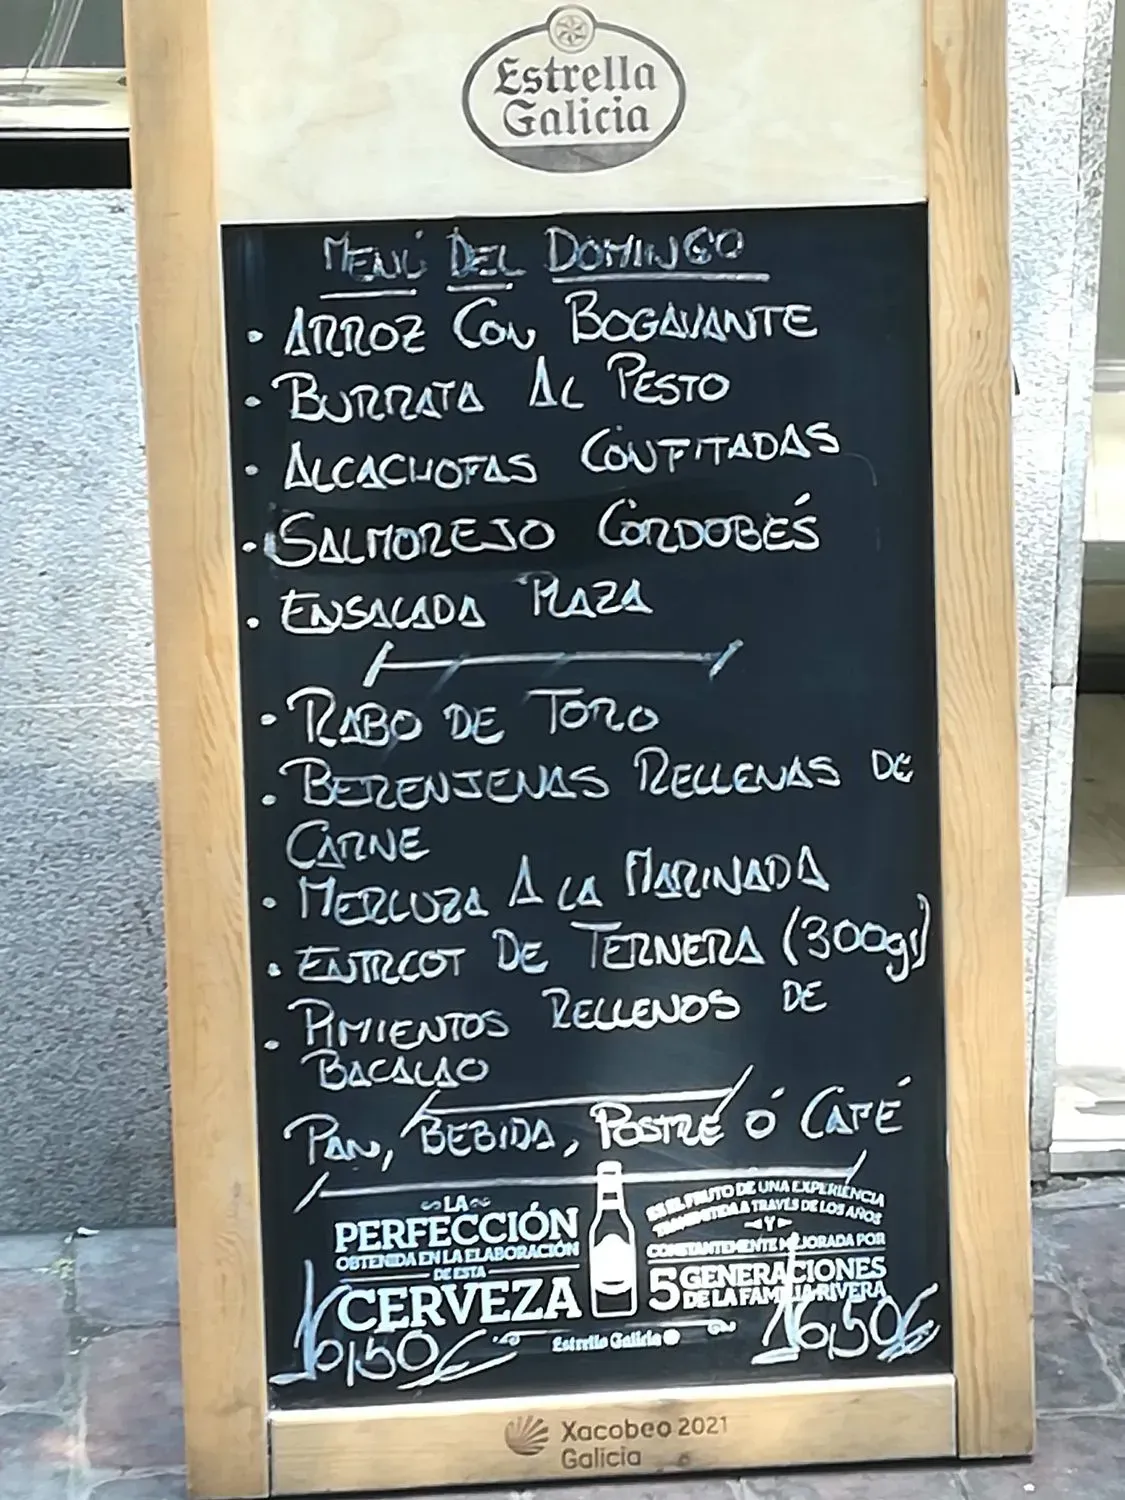 Estrella
Galicia
MENÚ DEL DOMINGO
• ARROZ CON BOGAVANTE
• BURRATA AL PESTO
• ALCACHOFAS CONFITADAS
• SALMOREJO CORDOBÉS
• ENSALADA PLAZA
• RABO DE TORO
• BERENJENAS RELLENAS DE
CARNE
• MERLUZA A LA MARINADA
• ENTRCOT DE TERNERA (300gr)
• PIMIENTOS RELLENOS DE
BACALAO
PAN, BEBIDA, POSTRE Ó CAFÉ
LA
PERFECCIÓN
OBTENIDA EN LA ELABORACIÓN
DE ESTA
CERVEZA
ES EL FRUTO DE UNA EXPERIENCIA
TRANSMITIDA A TRAVÉS DE LOS AÑOS
Y
CONSTANTEMENTE MEJORADA POR
5 GENERACIONES
DE LA FAMILIA RIVERA
Estrella Galicia
16,50€ 16,50€
Xacobeo 2021
Galicia